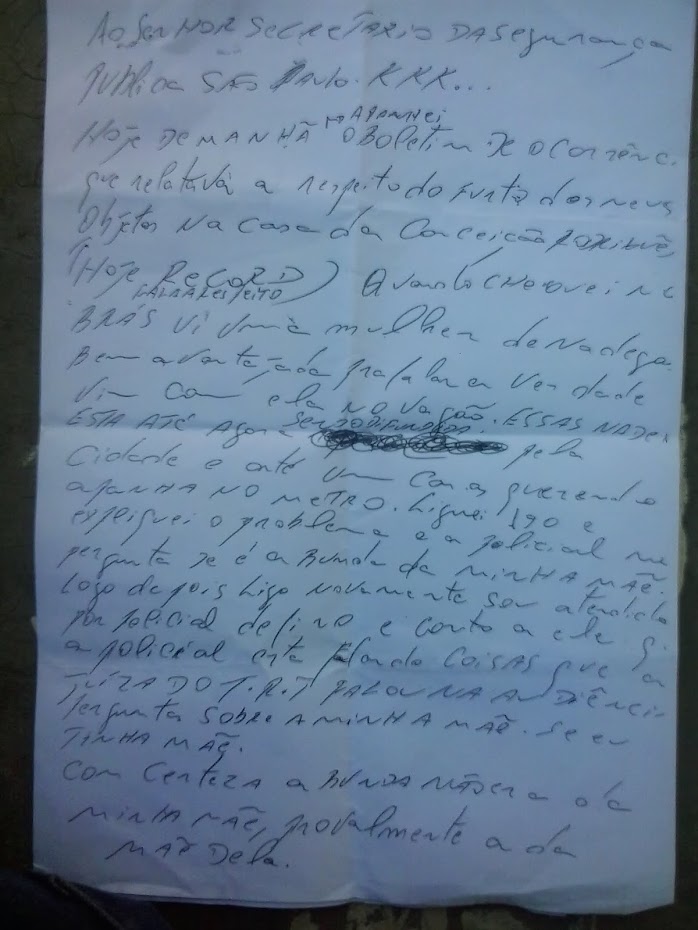 AO SENHOR SECRETARIO DA Segurança
PUBLica SÃO PAULO. KKK...
APANHEI
HOJE DE MANHÃ O BOLetim DE OCorrênc.
que relatava a respeito do FURTO dos meus
Objetos Na Casa da Conceição
(HOJE RECORD) Quando CHEGUEI NO
FALA A RESPEITO
BRÁS Vi uma mulher de Nadega
Bem avantajada pra falar a Verdade
Vim com ela NO VAGÃO. ESSAS
ESTA ATÉ Agora pela
Cidade e até um cara querendo
aPANHA NO METRO. Liguei 190 e
expliquei o problema e a policial me
pergunta se é a BUNDA da MINHA MÃE.
Logo depois Ligo Novamente sou atendido
por policial e conto a ele q.
a policial está falando COISAS que a
JUÍZA DO T.R.T FALOU NA AUDIÊNCI-
Pergunta SOBRE A MINHA MÃE. Se eu
TINHA MÃE.
Com Certeza a BUNDA NÃO era a da
MINHA MÃE, provalmente a da
MÃE DELA.